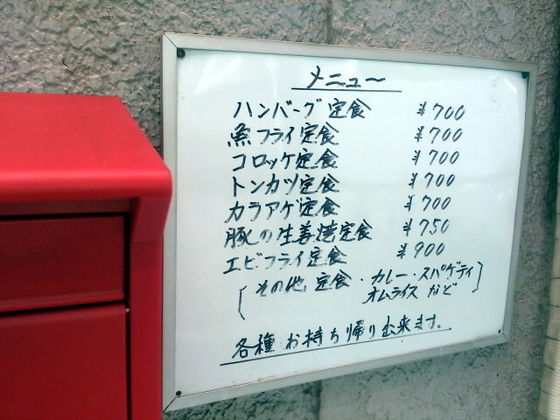 メニュー
ハンバーグ定食 ¥700
魚フライ定食 ¥700
コロッケ定食 ¥700
トンカツ定食 ¥700
カラアゲ定食 ¥700
豚の生姜焼定食 ¥750
エビフライ定食 ¥900
[その他 定食・カレー・スパゲティ
オムライスなど]
各種お持ち帰り出来ます。